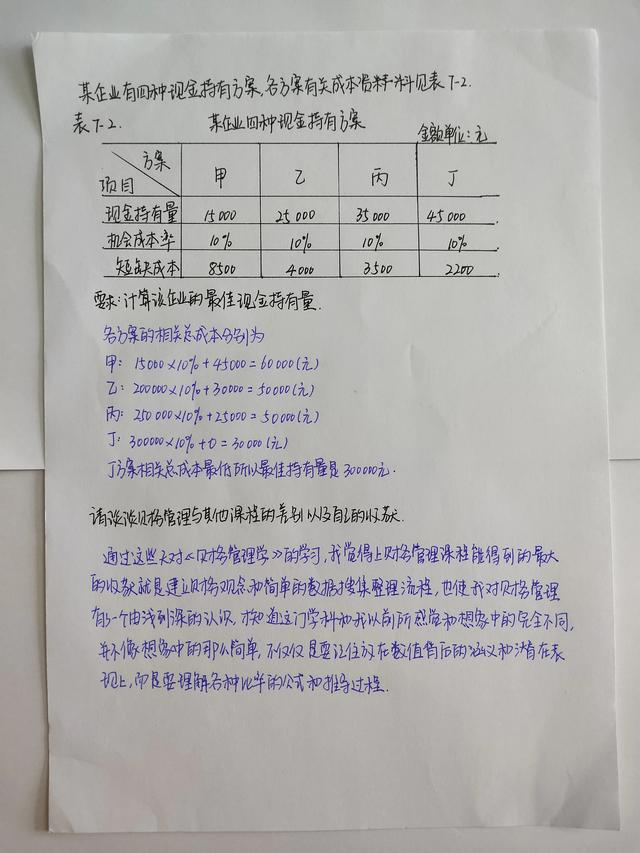 某企业有四种现金持有方案,各方案有关成本资料见表7-2.
表7-2. 某企业四种现金持有方案 金额单位:元
方案
项目 甲 乙 丙 丁
现金持有量 15000 25000 35000 45000
机会成本率 10% 10% 10% 10%
短缺成本 8500 4000 3500 2200
要求:计算该企业的最佳现金持有量.
各方案的相关总成本分别为
甲: 15000×10%+45000=60000(元)
乙: 200000×10%+30000=50000(元)
丙: 250000×10%+25000=50000(元)
丁: 300000×10%+0=30000(元)
丁方案相关总成本最低所以最佳持有量是300000元.
请谈谈财务管理与其他课程的差别以及自己的收获.
通过这些天对《财务管理学》的学习,我觉得上财务管理课程能得到的最大
的收获就是建立财务观念和简单的数据搜集整理流程,也使我对财务管理
有了一个由浅到深的认识,才知道这门学科和我以前所感觉和想象中的完全不同,
并不像想象中的那么简单,不仅仅是要记住放在数值背后的涵义和潜在表
现上,而是要理解各种比率的公式和推导过程.